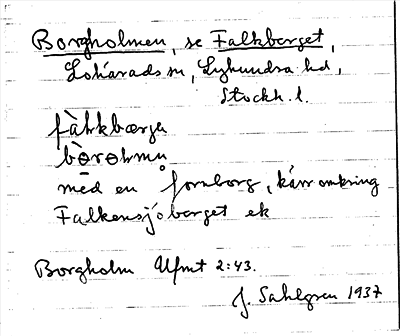 Borgholmen, se Falkberget,
Lohärads sn, Lyhundra hd,
Stockh. l.
fàłkbærjə
bòrohmən
med en fornborg, kärr omkring
Falkensjöberget ek
Borgholm Ufmt 2:43.
J. Sahlgren 1937